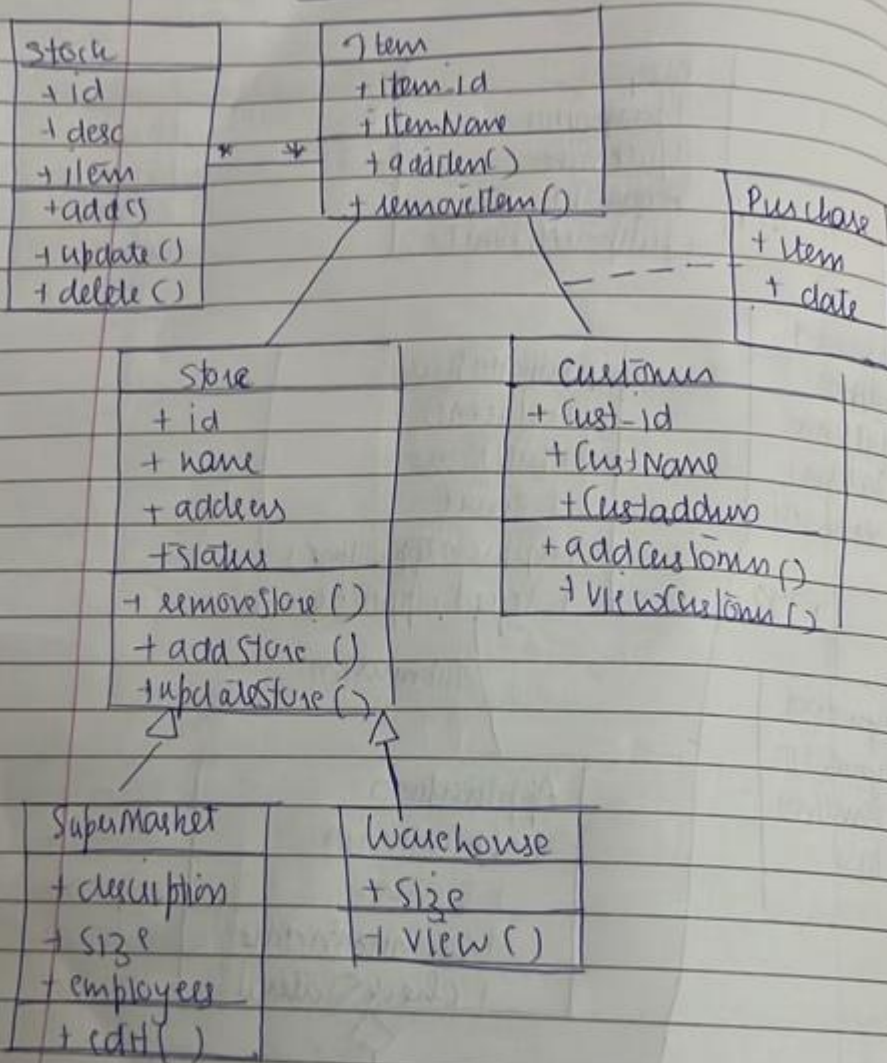 Stock
+ id
+ desc
+ item
+ add()
+ update()
+ delete()
*
*
Item
+ item_id
+ itemName
+ addItem()
+ removeItem()
Purchase
+ item
+ date
Store
+ id
+ name
+ address
+ status
+ removeStore()
+ addStore()
+ updateStore()
Customer
+ Cust_id
+ CustName
+ Custaddress
+ addCustomer()
+ viewCustomer()
SuperMarket
+ description
+ size
+ employees
+ edit()
Warehouse
+ size
+ view()